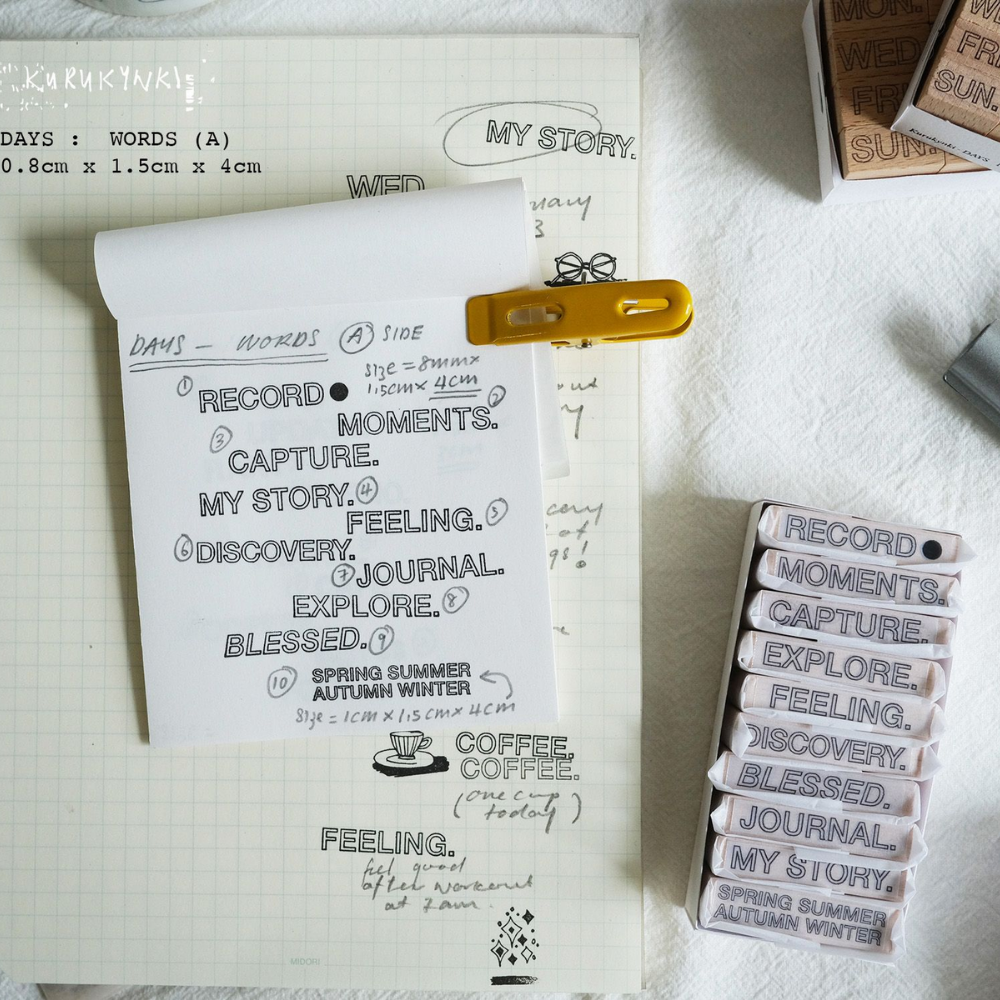 KURUKYNKI
DAYS : WORDS (A)
0.8cm x 1.5cm x 4cm
MY STORY.
WED
3
DAYS - WORDS (A) SIDE
SIZE = 8mm x
1,5cm x 4cm
① RECORD●
MOMENTS. ②
③ CAPTURE.
MY STORY. ④
FEELING. ⑤
⑥ DISCOVERY.
⑦ JOURNAL.
EXPLORE. ⑧
BLESSED. ⑨
⑩ SPRING SUMMER
AUTUMN WINTER
SIZE = 1cm x 1,5cm x 4cm
COFFEE.
COFFEE.
(one cup
today)
FEELING.
feel good
after workout
at 7am.
MIDORI
MON.
WED
FRI
SUN.
FRI
SUN.
RECORD●
MOMENTS.
CAPTURE.
EXPLORE.
FEELING.
DISCOVERY.
BLESSED.
JOURNAL.
MY STORY.
SPRING SUMMER
AUTUMN WINTER